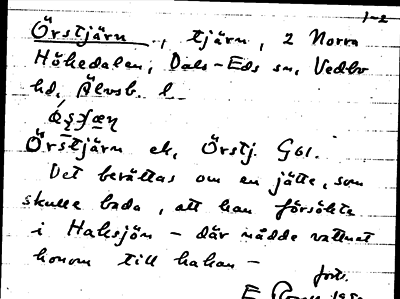 1-2
Örstjärn, tjärn, 2 Norra
Hökedalen, Dals-Eds sn, Vedbo
hd, Älvsb. l.
Örstjärn ek, Örstj. G61.
Det berättas om en jätte, som
skulle bada, att han försökte
i Haksjön - där nådde vattnet
honom till hakan -
forts.
E